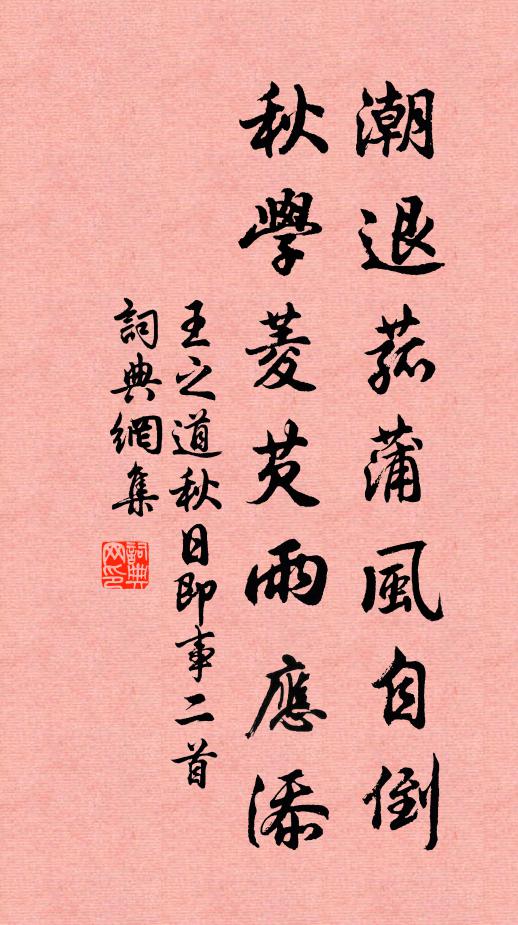 潮退菰蒲風自倒
秋學菱芡雨應添
王之道秋日即事二首
詞典網集
詞典網印